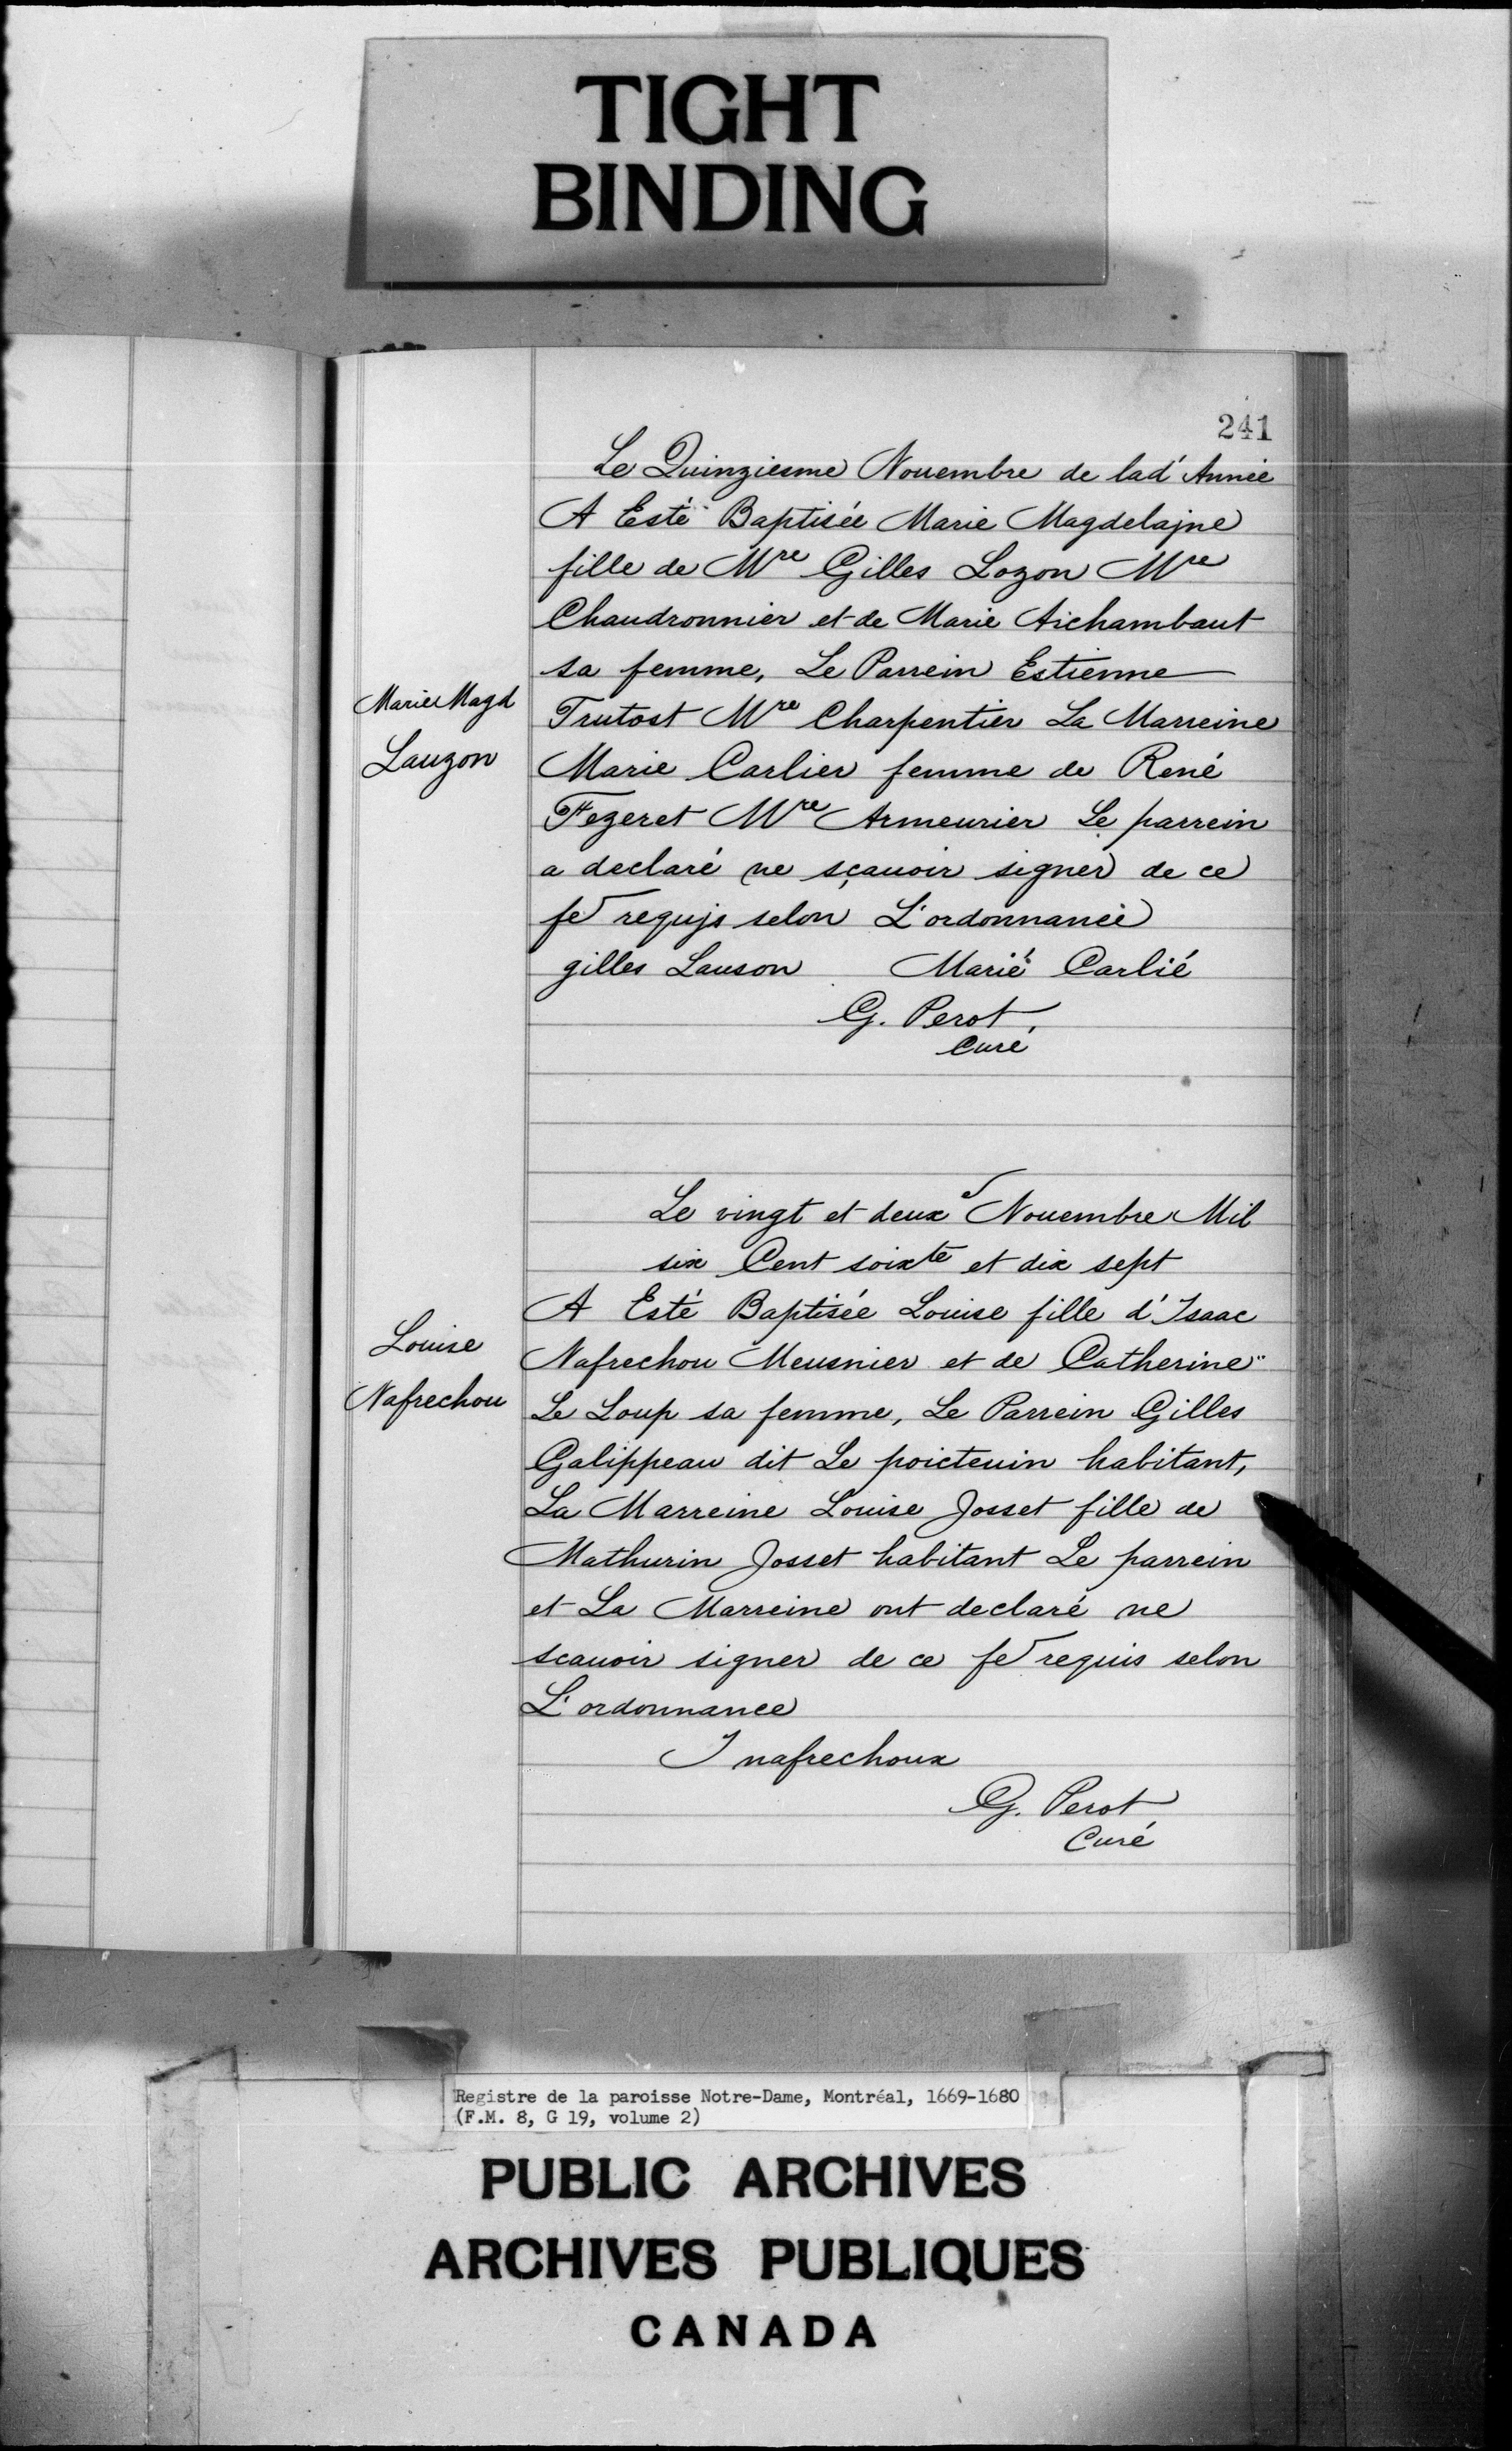 TIGHT
BINDING
241
Le Quinziesme Nouembre de lad' Année
A Esté Baptisée Marie Magdelajne
fille de Mre Gilles Lozon Mre
Chaudronnier et de Marie Aichambaut
sa femme, Le Parrein Estienne
Marie Magd
Lauzon
Trutost Mre Charpentier La Marreine
Marie Carlier femme de René
Fezeret Mre Armeurier Le parrein
a declaré ne sçauoir signer de ce
fe requjs selon L'ordonnance
gilles Lauson Marié Carlié
G. Perot,
Curé
Le vingt et deux Nouembre Mil
six Cent soixte et dix sept
A Esté Baptisée Louise fille d'Isaac
Louise
Nafrechou
Nafrechou Meusnier et de Catherine
Le Loup sa femme, Le Parrein Gilles
Galippeau dit Le poicteuin habitant,
La Marreine Louise Josset fille de
Mathurin Josset habitant Le parrein
et La Marreine ont declaré ne
scauoir signer de ce fe requis selon
L'ordonnance
I nafrechoux
G. Perot
Curé
Registre de la paroisse Notre-Dame, Montréal, 1669-1680
(F.M. 8, G 19, volume 2)
PUBLIC ARCHIVES
ARCHIVES PUBLIQUES
CANADA